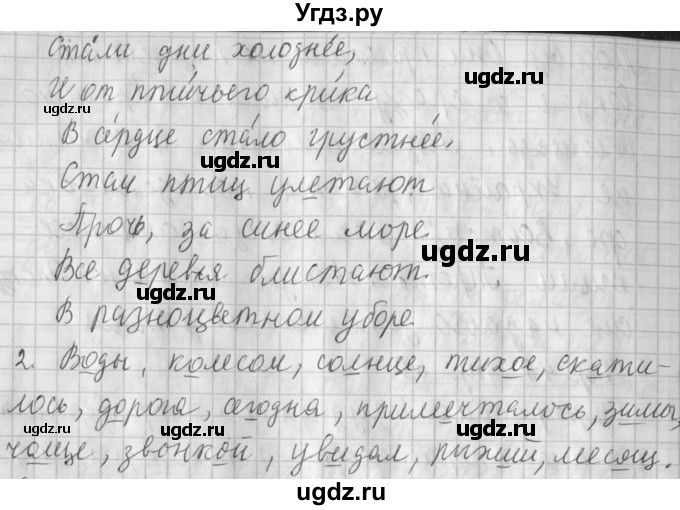 Угдз.ру
Стали дни холоднее,
И от птичьего крика
В сердце стало грустнее.
Стаи птиц улетают
Прочь, за синее море.
Все деревья блистают.
В разноцветном уборе
2. Воды, колесом, солнце, тихое, скати-
лось, дорога, сегодна, примечталось, зимы,
чаще, звонкой, увидал, рыжий, месящ.
ugdz.ru
ugdz.ru
ugdz.ru
ugdz.ru
ugdz.ru
ugdz.ru
ugdz.ru
ugdz.ru
ugdz.ru
ugdz.ru
ugdz.ru
ugdz.ru
ugdz.ru